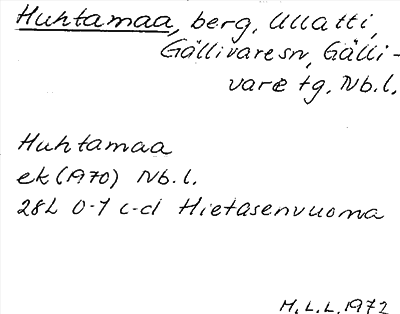 Huhtamaa, berg, Ullatti,
Gällivaresn, Gälli-
vare tg, Nb.l.
Huhtamaa
ek (1970) Nb.l.
28L 0-1 c-d Hietasenvuoma
M.L.L. 1972